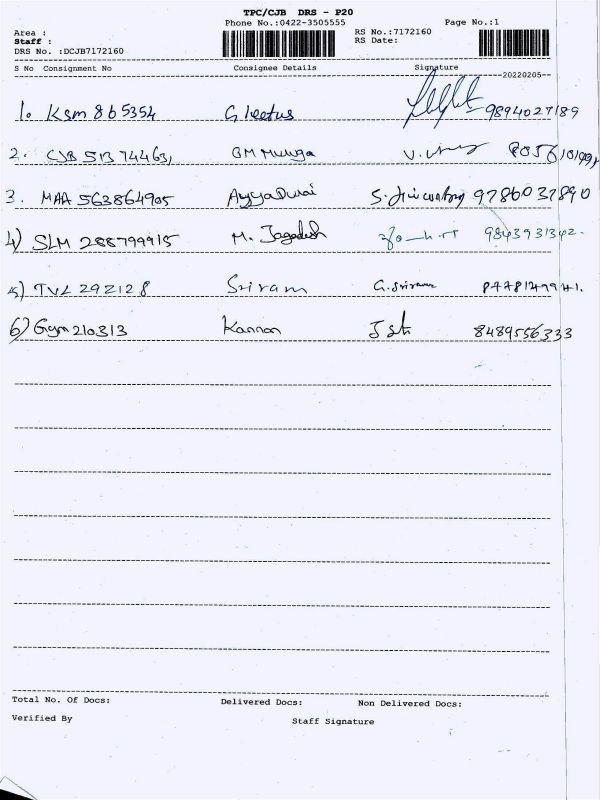 TPC/CJB DRS - P20
Phone No.:0422-3505555 Page No.:1
Area : RS No.:7172160
Staff : RS Date:
DRS No. :DCJB7172160
S No Consignment No Consignee Details Signature
--20220205--
1. Ksm 865354 G leetus 9894027189
2. CJB 513744631 BM Muruga
3. MAA 563864905 Ayyadurai 9786037890
4) SLM 288799915 M. Jagadesh 9843931342.
5) TVL 292128 Sriram G.Sriram
6) Gym 210313 Kannan 8489556333
Total No. Of Docs: Delivered Docs: Non Delivered Docs:
Verified By Staff Signature